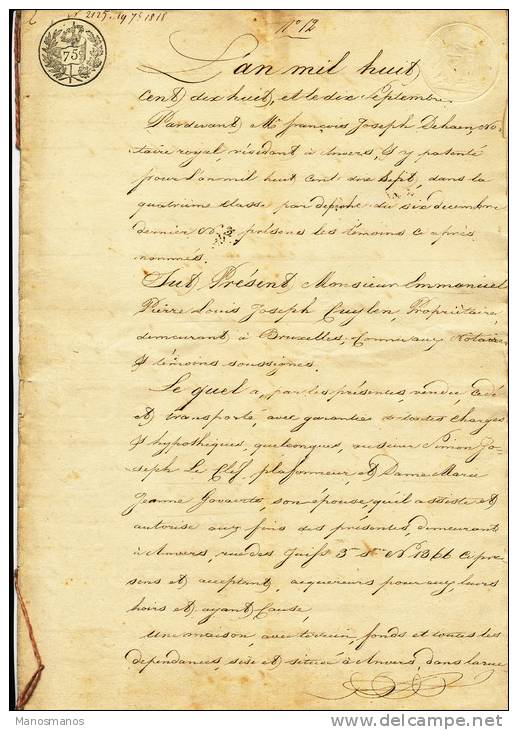 N° 2125. 19 7s 1818
N° 12
75c
L'an mil huit
Cent dix huit, et le dix Septembre
Pardevant Me françois Joseph Dehaen No-
taire royal, résidant à Anvers, & y patenté
pour l'an mil huit Cent dix Sept, dans la
quatrieme classe par depêche du six decembre
dernier N° 3 présens les témoins ci après
nommés.
Fut Présent Monsieur Emmanuel
Pierre Louis Joseph Cuylen, Propriétaire,
demeurant à Bruxelles, Connu aux Notaire
& témoins soussignés.
Le quel a, par les présentes vendu, Cédé
et transporté, avec garantie de toutes Charges
& hypothèques, quelconques, au sieur Simon Jo-
seph Le Clef, plafonneur, et Dame Marie
Jeanne Govaerts, son épouse, qu'il assiste et
autorise aux fins des présentes, demeurant
à Anvers, rue des Juifs 3e son N° 1366 Ci pré-
sens et acceptant, acquereurs pour eux, leurs
hoirs et ayant Cause,
Une maison, avec terrein, fonds et toutes les
dependances, sise et située à Anvers, dans la rue
Manosmanos
delcampe.net